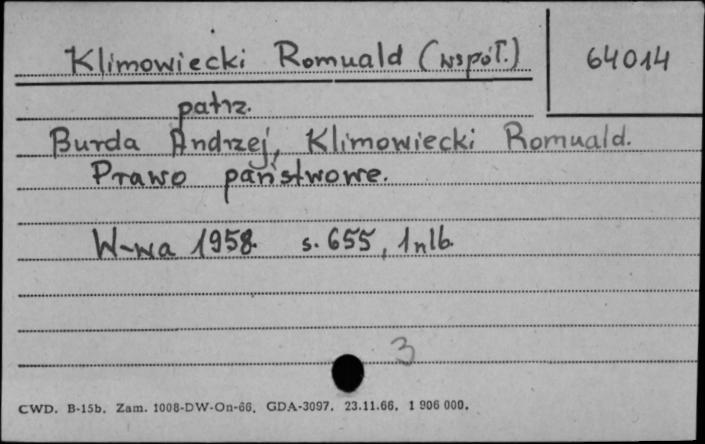 Klimowiecki Romuald (współ.)
64014
patrz.
Burda Andrzej, Klimowiecki Romuald.
Prawo państwowe.
W-wa 1958. s. 655, 1 nlb.
3
CWD. B-15b. Zam. 1008-DW-On-66. GDA-3097. 23.11.66. 1 906 000.